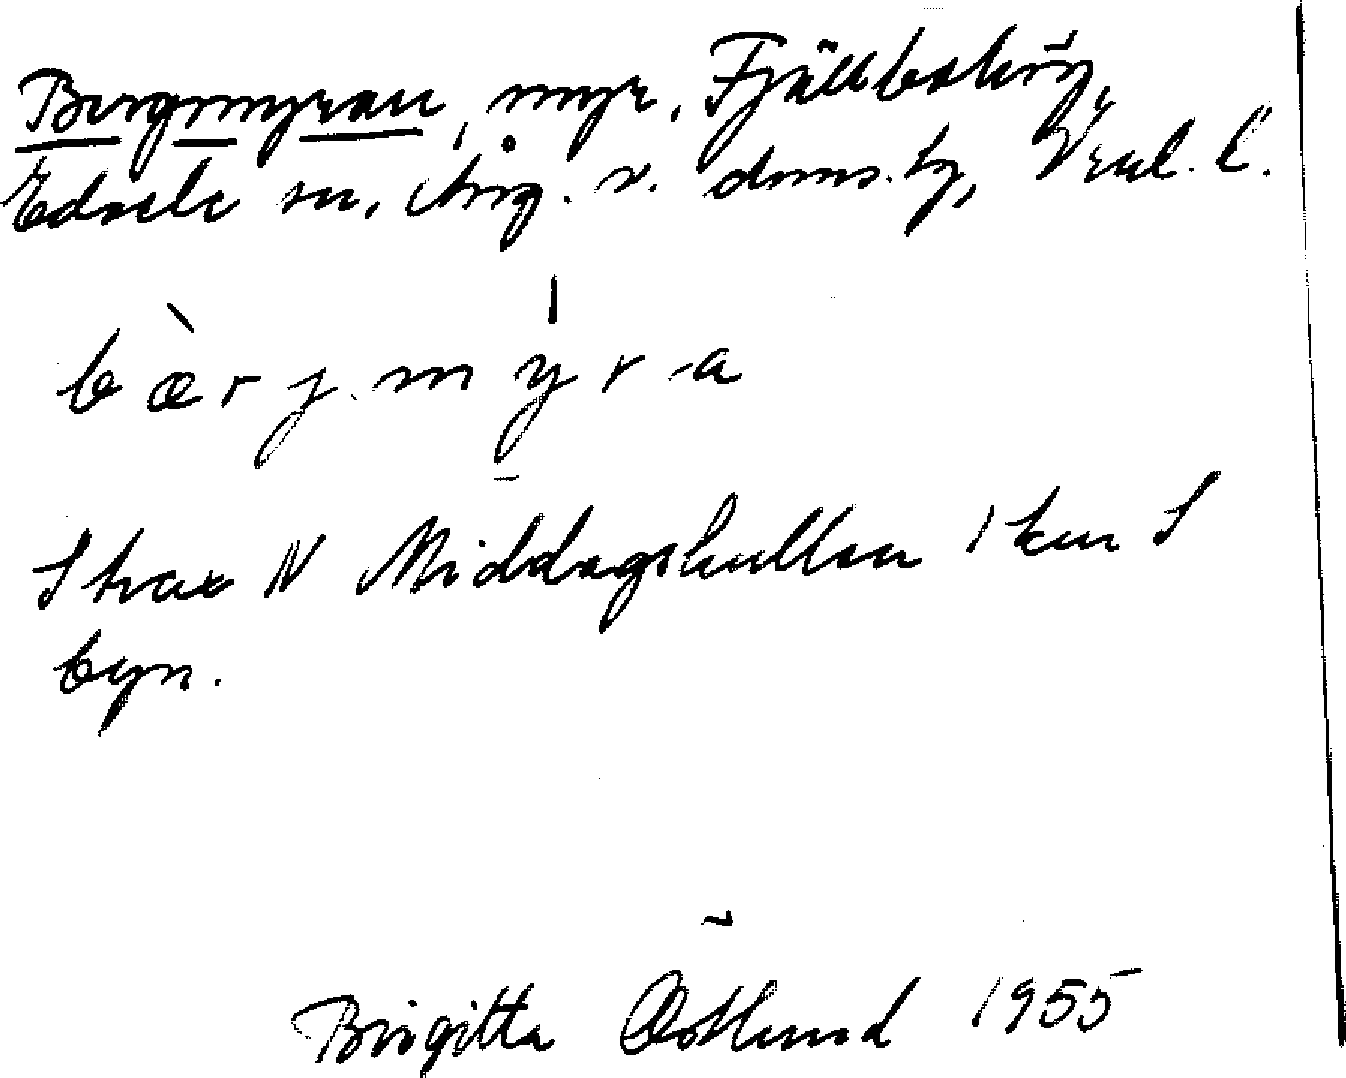 Bergmyran, myr, Fjällbohög,
Edsele sn, Ång. v. doms.hg, Vnl. l.
bæ̀rjmýra
Strax N Middagskullen 1 km S
byn.
Birgitta Östlund 1955